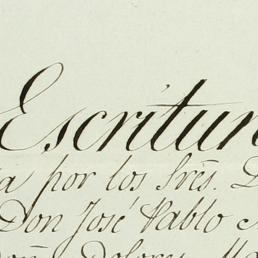 Escritur
a por los Sres. D
Don José Pablo
Dolores Ma